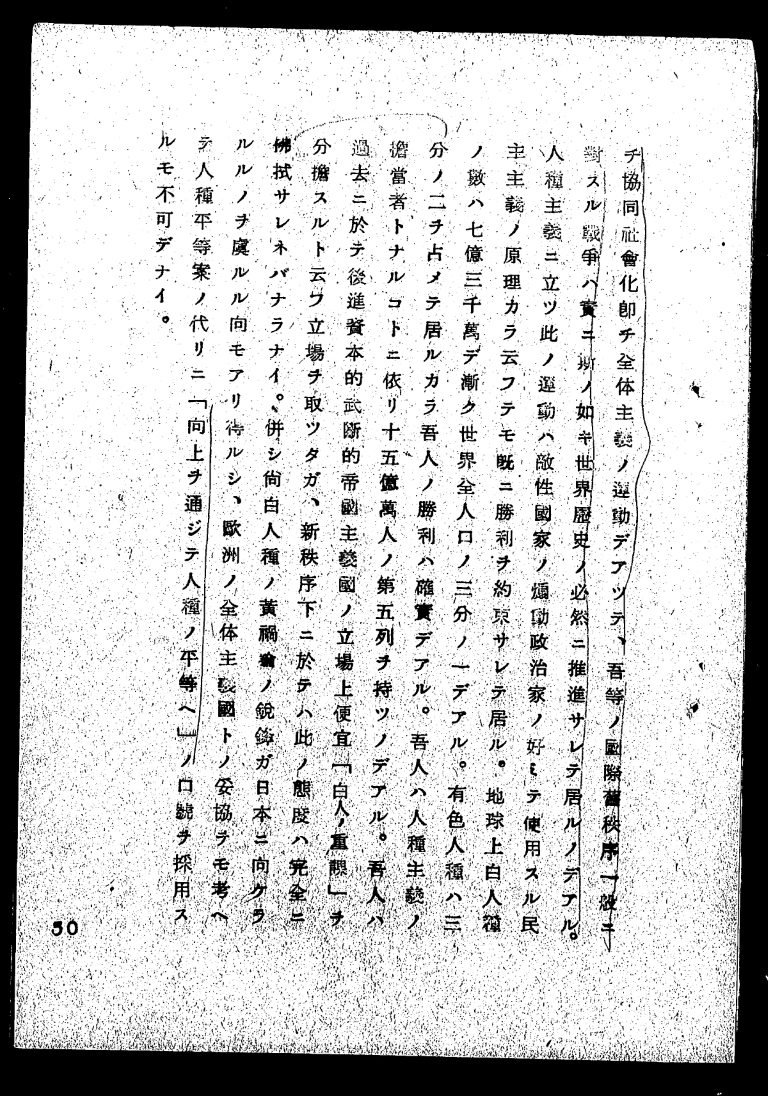 チ協同社會化卽チ全体主義ノ運動デアツテ、吾等ノ國際舊秩序一般ニ
對スル戰爭ハ實ニ斯ノ如キ世界歷史ノ必然ニ推進サレテ居ルノデアル。
人種主義ニ立ツ此ノ運動ハ敵性國家ノ煽動政治家ノ好ミテ使用スル民
主主義ノ原理カラ云フテモ既ニ勝利ヲ約束サレテ居ル。地球上白人種
ノ數ハ七億三千萬デ漸ク世界全人口ノ三分ノ一デアル。有色人種ハ三
分ノ二ヲ占メテ居ルカラ吾人ノ勝利ハ確實デアル。吾人ハ人種主義ノ
擔當者トナルコトニ依リ十五億萬人ノ第五列ヲ持ツノデアル。吾人ハ
過去ニ於テ後進資本的武斷的帝國主義國ノ立場上便宜「白人ノ重課」ヲ
分擔スルト云フ立場ヲ取ツタガ、新秩序下ニ於テハ此ノ態度ハ完全ニ
拂拭サレネバナラナイ。併シ尙白人種ノ黃禍論ノ銳鋒ガ日本ニ向ケラ
ルルノヲ虞ルル向モアリ得ルシ、歐洲ノ全体主義國トノ妥協ヲモ考ヘ
テ人種平等案ノ代リニ「向上ヲ通ジテ人種ノ平等ヘ」ノ口號ヲ採用ス
ルモ不可デナイ。
50